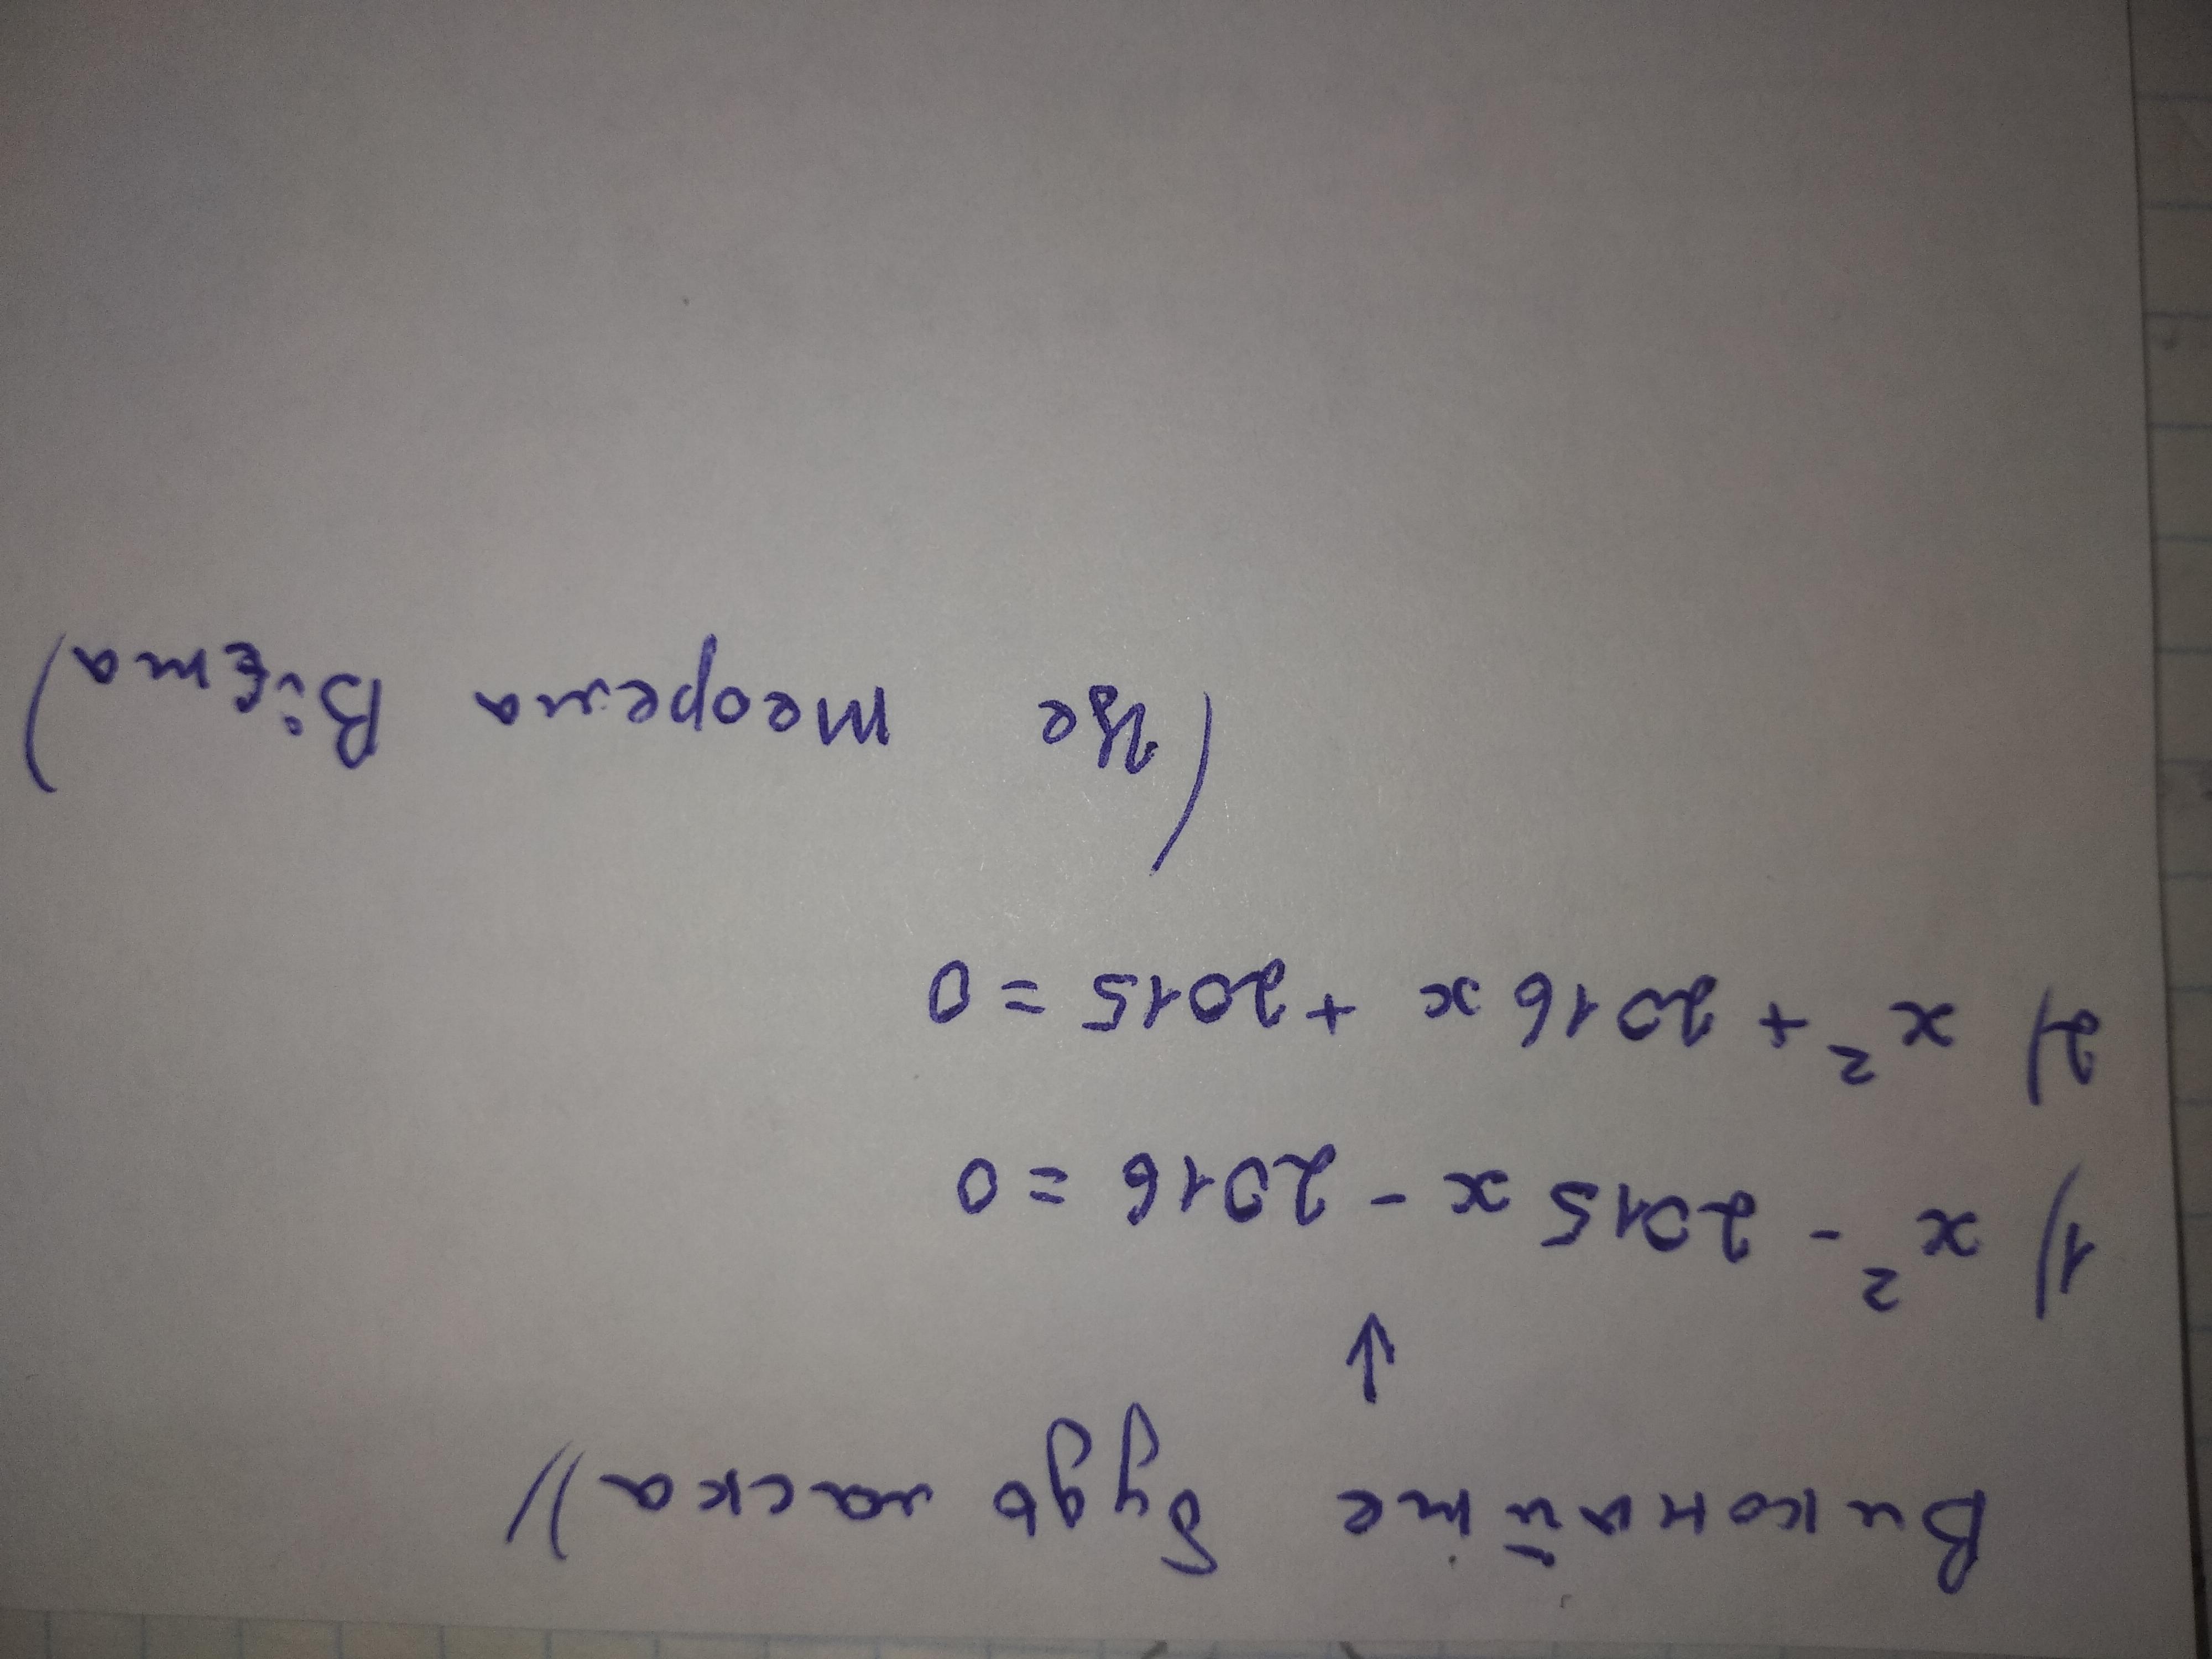 Виконайте будь ласка))
↓
1) x² - 2015x - 2016 = 0
2) x² + 2016x + 2015 = 0
(Це теорема Вієта)